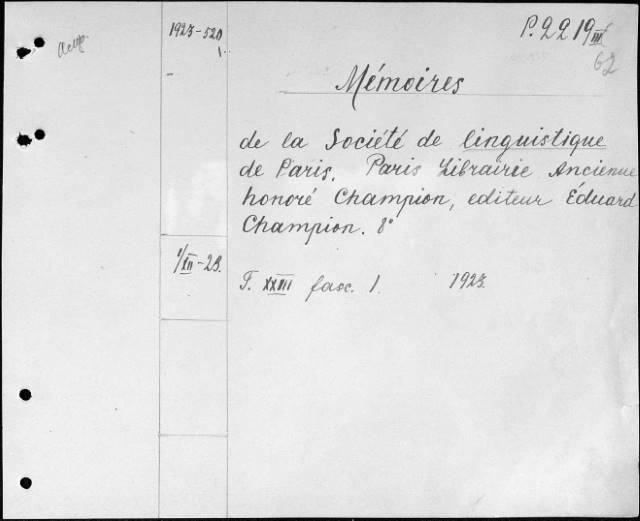 1923-520
1.
P.2219 III
62
Mémoires
de la Société de linguistique
de Paris. Paris Librairie Ancienne
honoré Champion, editeur Éduard
Champion. 8°
1/XII-23.
T. XXIII fasc. 1. 1923.